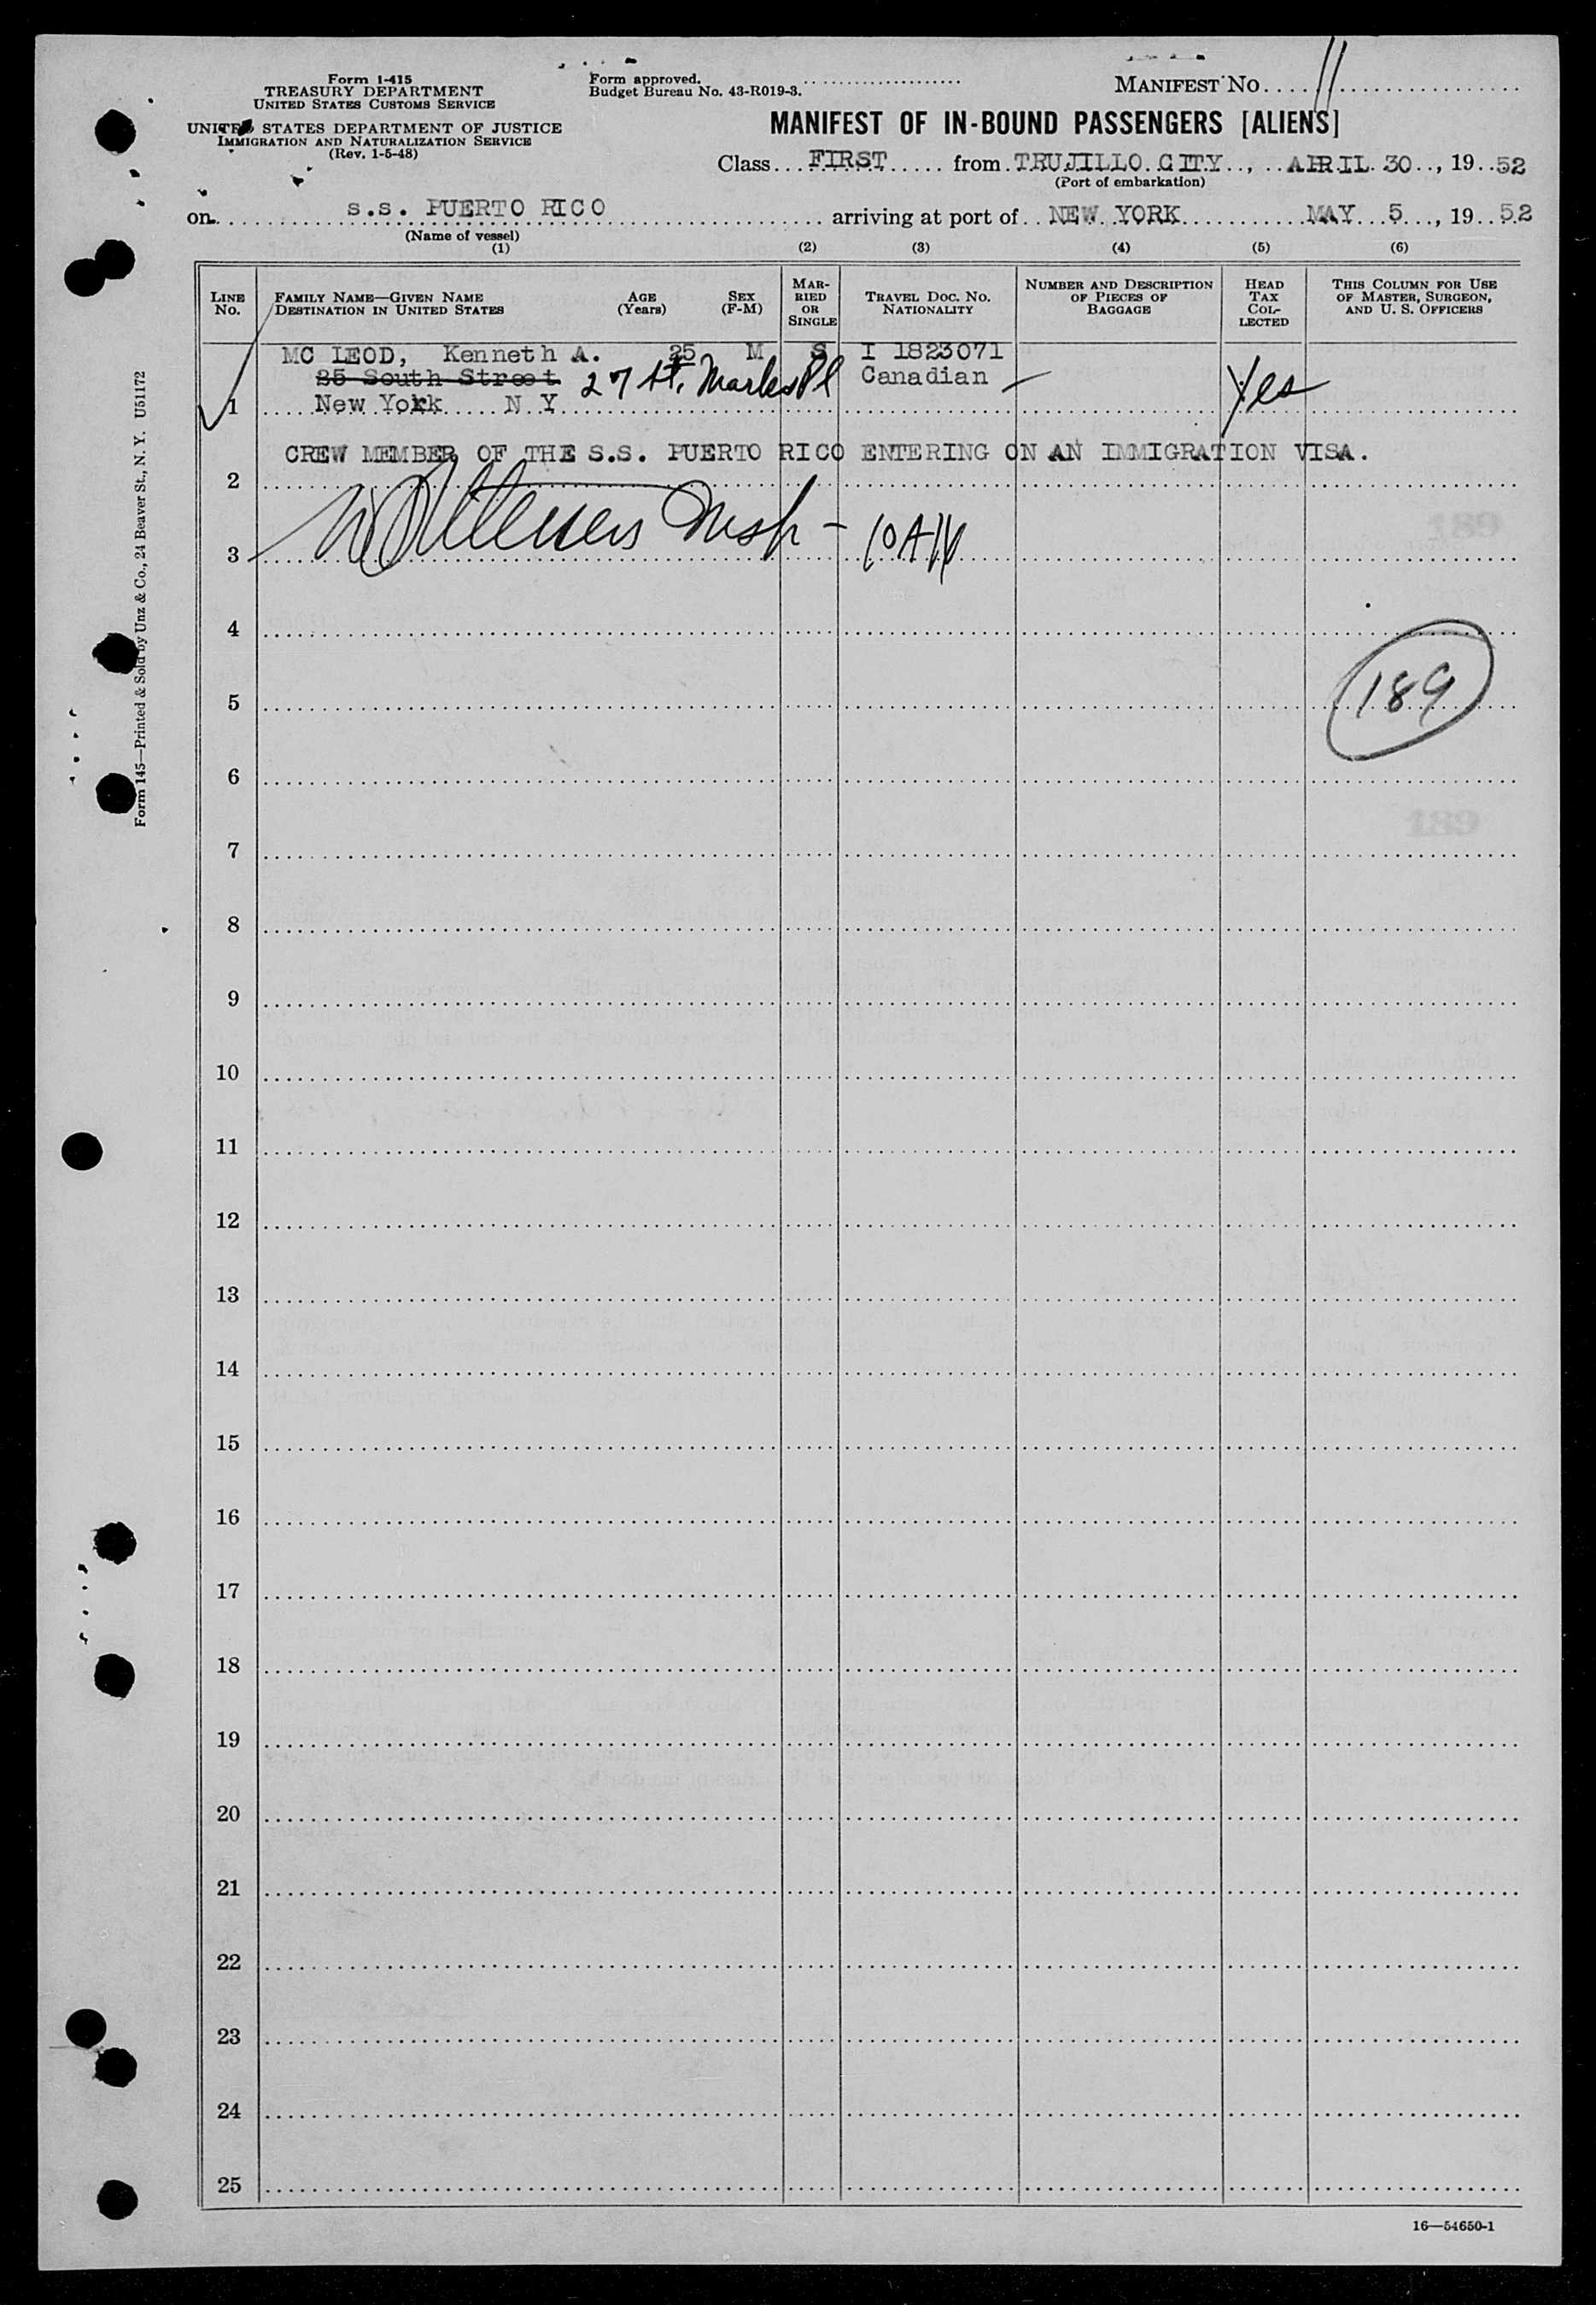 Form I-415
TREASURY DEPARTMENT
UNITED STATES CUSTOMS SERVICE
UNITED STATES DEPARTMENT OF JUSTICE
IMMIGRATION AND NATURALIZATION SERVICE
(Rev. 1-5-48)
Form approved.
Budget Bureau No. 43-R019-3.
MANIFEST NO. 11
MANIFEST OF IN-BOUND PASSENGERS [ALIENS]
Class FIRST from TRUJILLO CITY, APRIL 30, 19 52
(Port of embarkation)
on S.S. PUERTO RICO arriving at port of NEW YORK MAY 5, 19 52
(Name of vessel)
(1) (2) (3) (4) (5) (6)
LINE NO.
FAMILY NAME—GIVEN NAME
DESTINATION IN UNITED STATES
AGE (Years)
SEX (F-M)
MARRIED OR SINGLE
TRAVEL DOC. NO.
NATIONALITY
NUMBER AND DESCRIPTION OF PIECES OF BAGGAGE
HEAD TAX COLLECTED
THIS COLUMN FOR USE OF MASTER, SURGEON, AND U. S. OFFICERS
MC LEOD, Kenneth A. 25 M S I 1823071
25 South Street 27 St. Marks Pl Canadian — Yes
1 New York N Y
CREW MEMBER OF THE S.S. PUERTO RICO ENTERING ON AN IMMIGRATION VISA.
2
3 Insp -
4
189
5
6
7
189
8
9
10
11
12
13
14
15
16
17
18
19
20
21
22
23
24
25
16—54650-1
Form 145—Printed & Sold by Unz & Co., 24 Beaver St., N. Y. U51172